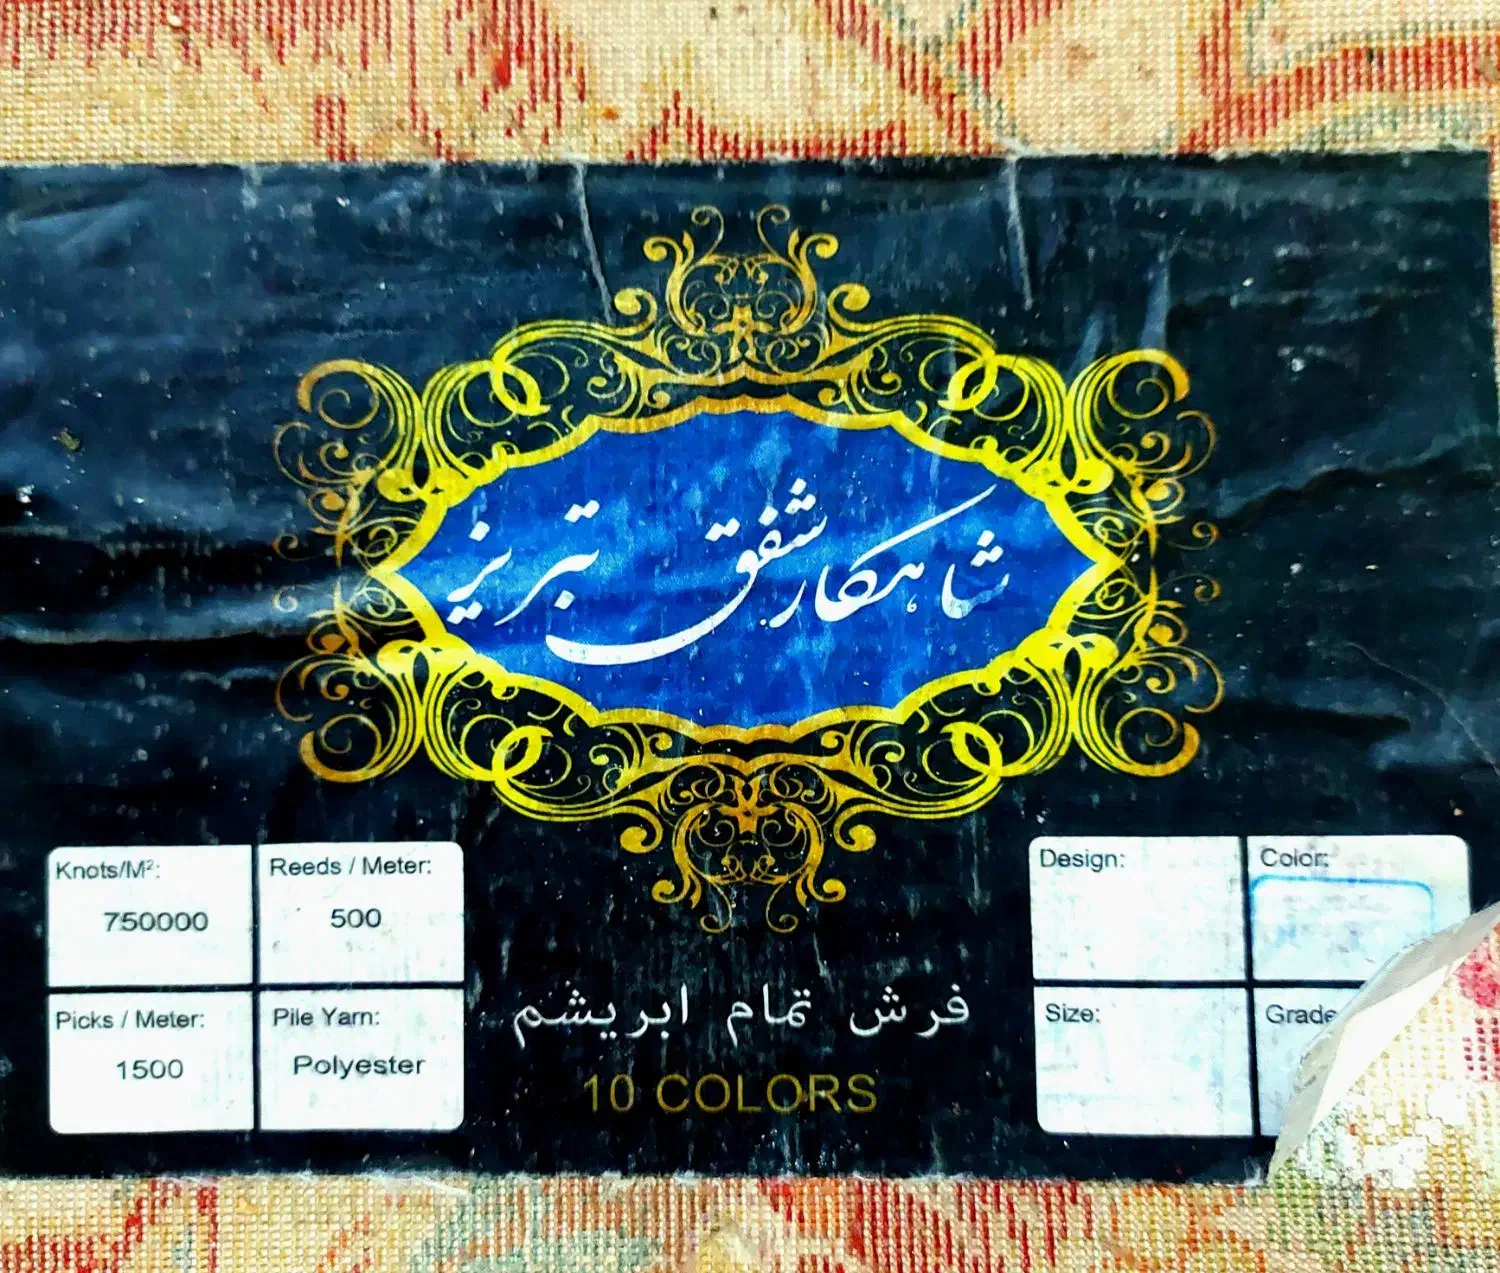 شاهکار شفق تبریز
Knots/M²:
750000
Reeds / Meter:
500
Picks / Meter:
1500
Pile Yarn:
Polyester
فرش تمام ابریشم
10 COLORS
Design:
Color:
Size:
Grade